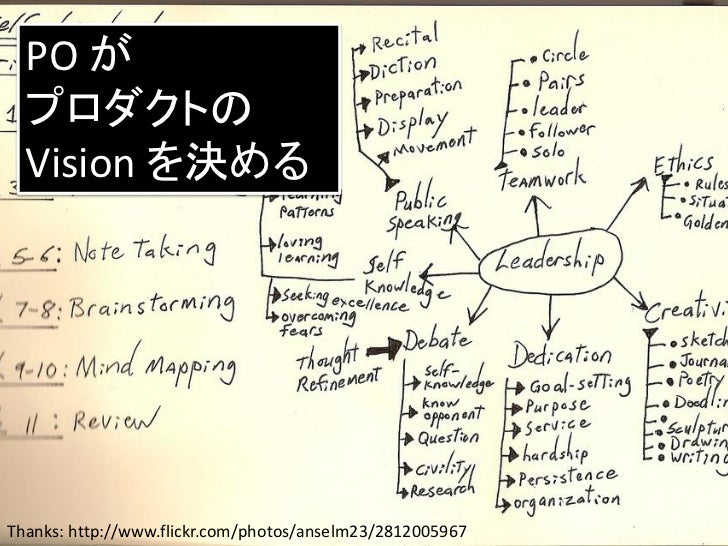 PO が
プロダクトの
Vision を決める
5-6: Note Taking
7-8: Brainstorming
9-10: Mind Mapping
11: Review
Recital
Diction
Preparation
Display
Movement
Public
Speaking
Circle
Pairs
leader
Follower
Solo
Teamwork
Ethics
Leadership
learning
Patterns
loving
learning
Self
Knowledge
Seeking excellence
overcoming
fears
Thought
Refinement
Debate
Self-
Knowledge
Know
opponent
Question
Civility
Research
Dedication
Goal-setting
Purpose
Service
hardship
Persistence
organization
Poetry
Writing
Thanks: http://www.flickr.com/photos/anselm23/2812005967